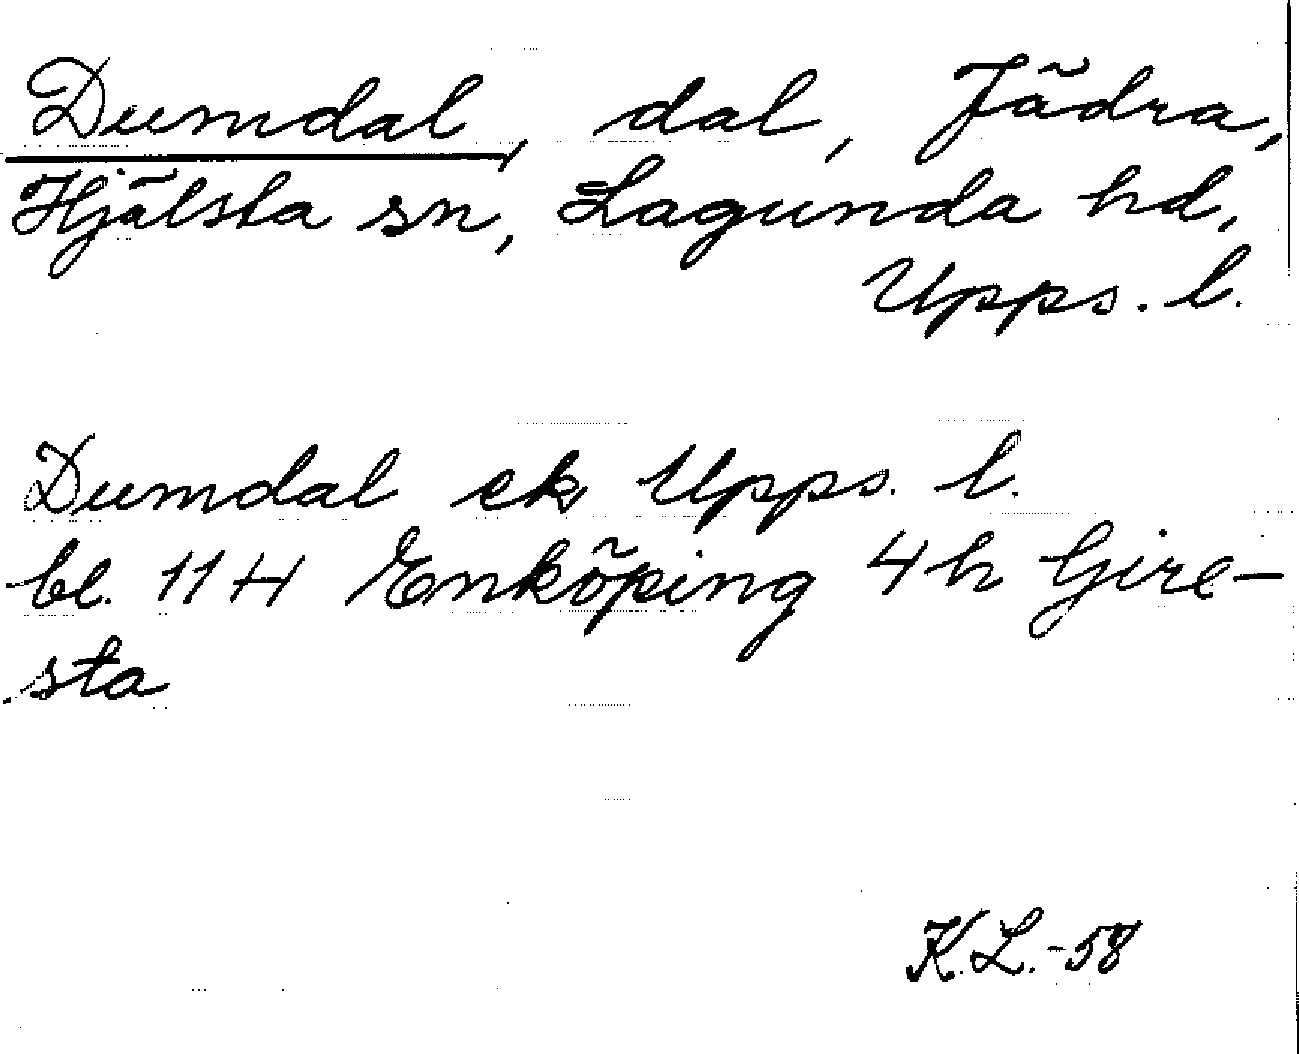 Dumdal, dal, Jädra,
Hjälsta sn, Lagunda hd,
Upps. l.
Dumdal ek Upps. l.
bl. 11 H Enköping 4 h Gire-
sta
K.L.-58